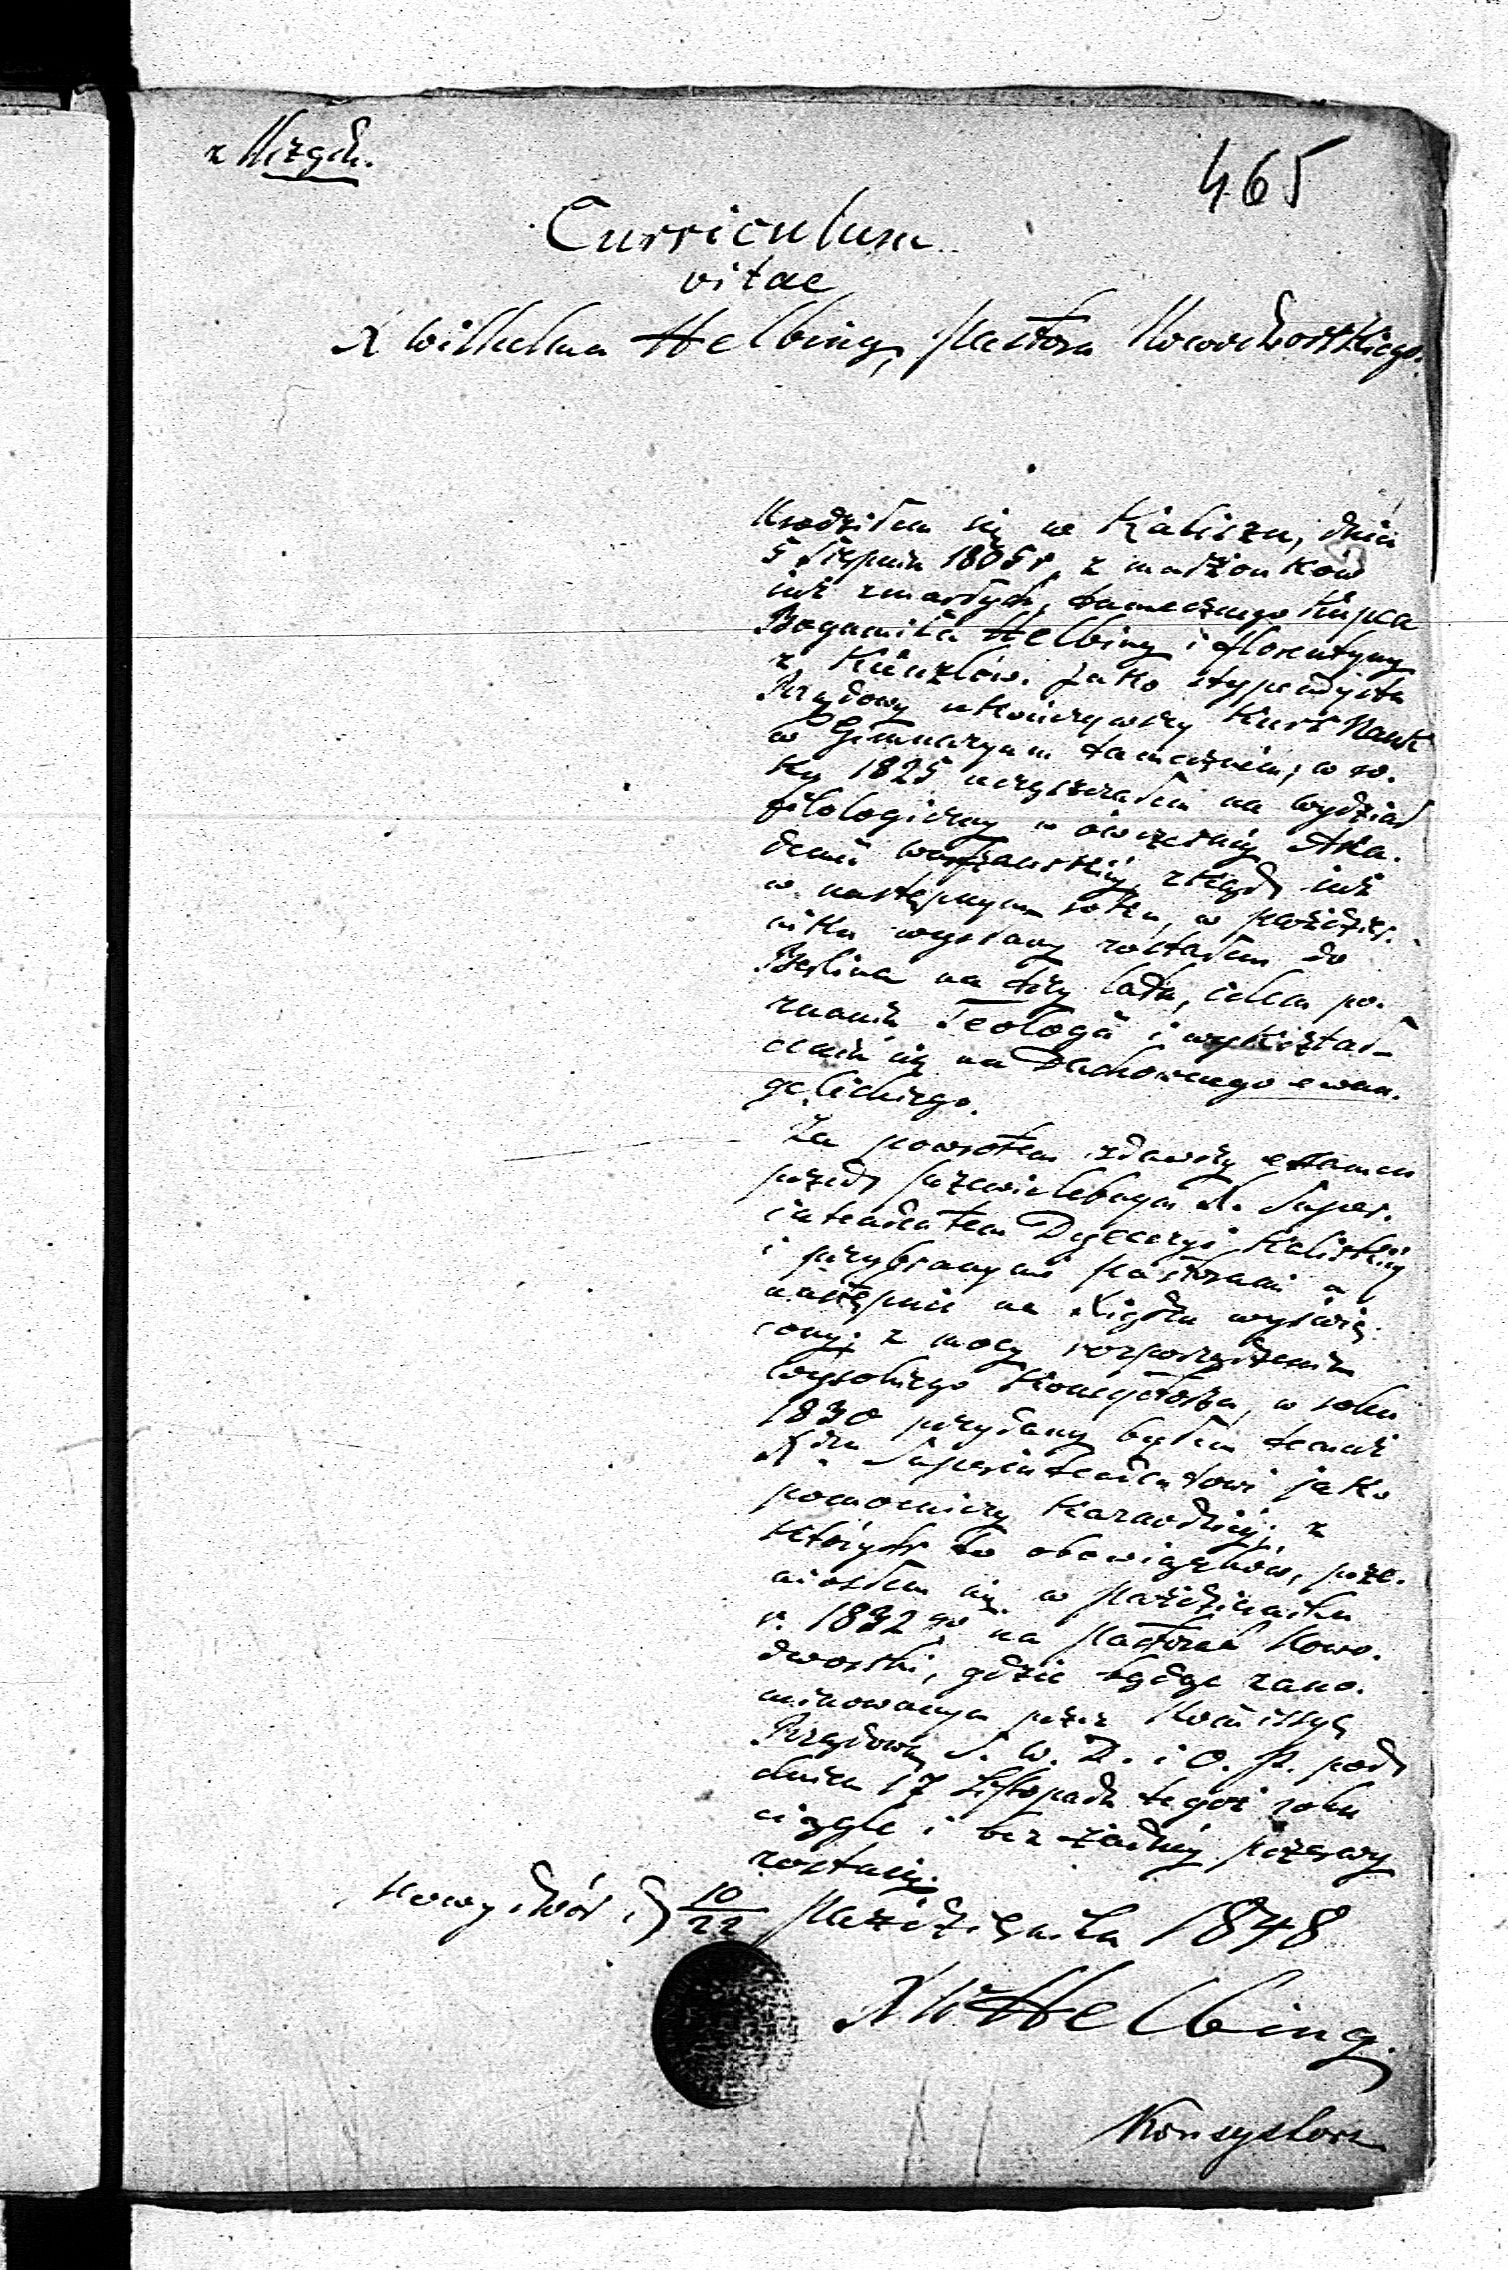 z Urzędu.
465
Curriculum
vitae
X Wilhelma Helbing, Pastora Nowodworskiego.
Urodziłem się w Kaliszu, dnia
5 Sierpnia 1805 r, z małżonków
już zmarłych, tamecznego Kupca
Bogumiła Helbing i Florentyny
z Künzlów. Jako stypendysta
Rządowy ukończywszy Kurs Nauk
w Gimnazyum tamecznem, w ro-
ku 1825 uczęszczałem na wydział
filologiczny w ówczesnéj Aka-
demii Warszawskiéj, zkąd już
w następnym roku, w paździer-
niku wysłany zostałem do
Berlina na trzy lata, celem po-
znania Teologii i wykształ-
cenia się na Duchownego ewan-
gelickiego.
Za powrotem zdawszy examen
przed przewielebnym X. Super-
intendentem Dyecezyi Kaliskiéj
i przybranymi pastorami a
następnie na Xiędza wyświę-
cony; z mocy rozporządzenia
Wysokiego Konsystorza, w roku
1830 przydany byłem temuż
X dzu Superintendentowi jako
pomocniczy Kaznodzieja; z
których to obowiązków, prze-
niosłem się w październiku
r. 1832 go na pastorat Nowo-
dworski, gdzie będąc zano-
minowanym przez Kommissyą
Rządową S. W. D. i O. P. pod
dniem 17 Listopada tegoż roku
ciągle i bez żadnéj przerwy
zostaję.
Nowy dwór d 10/22 Października 1848
X W Helbing.
Konsystorz